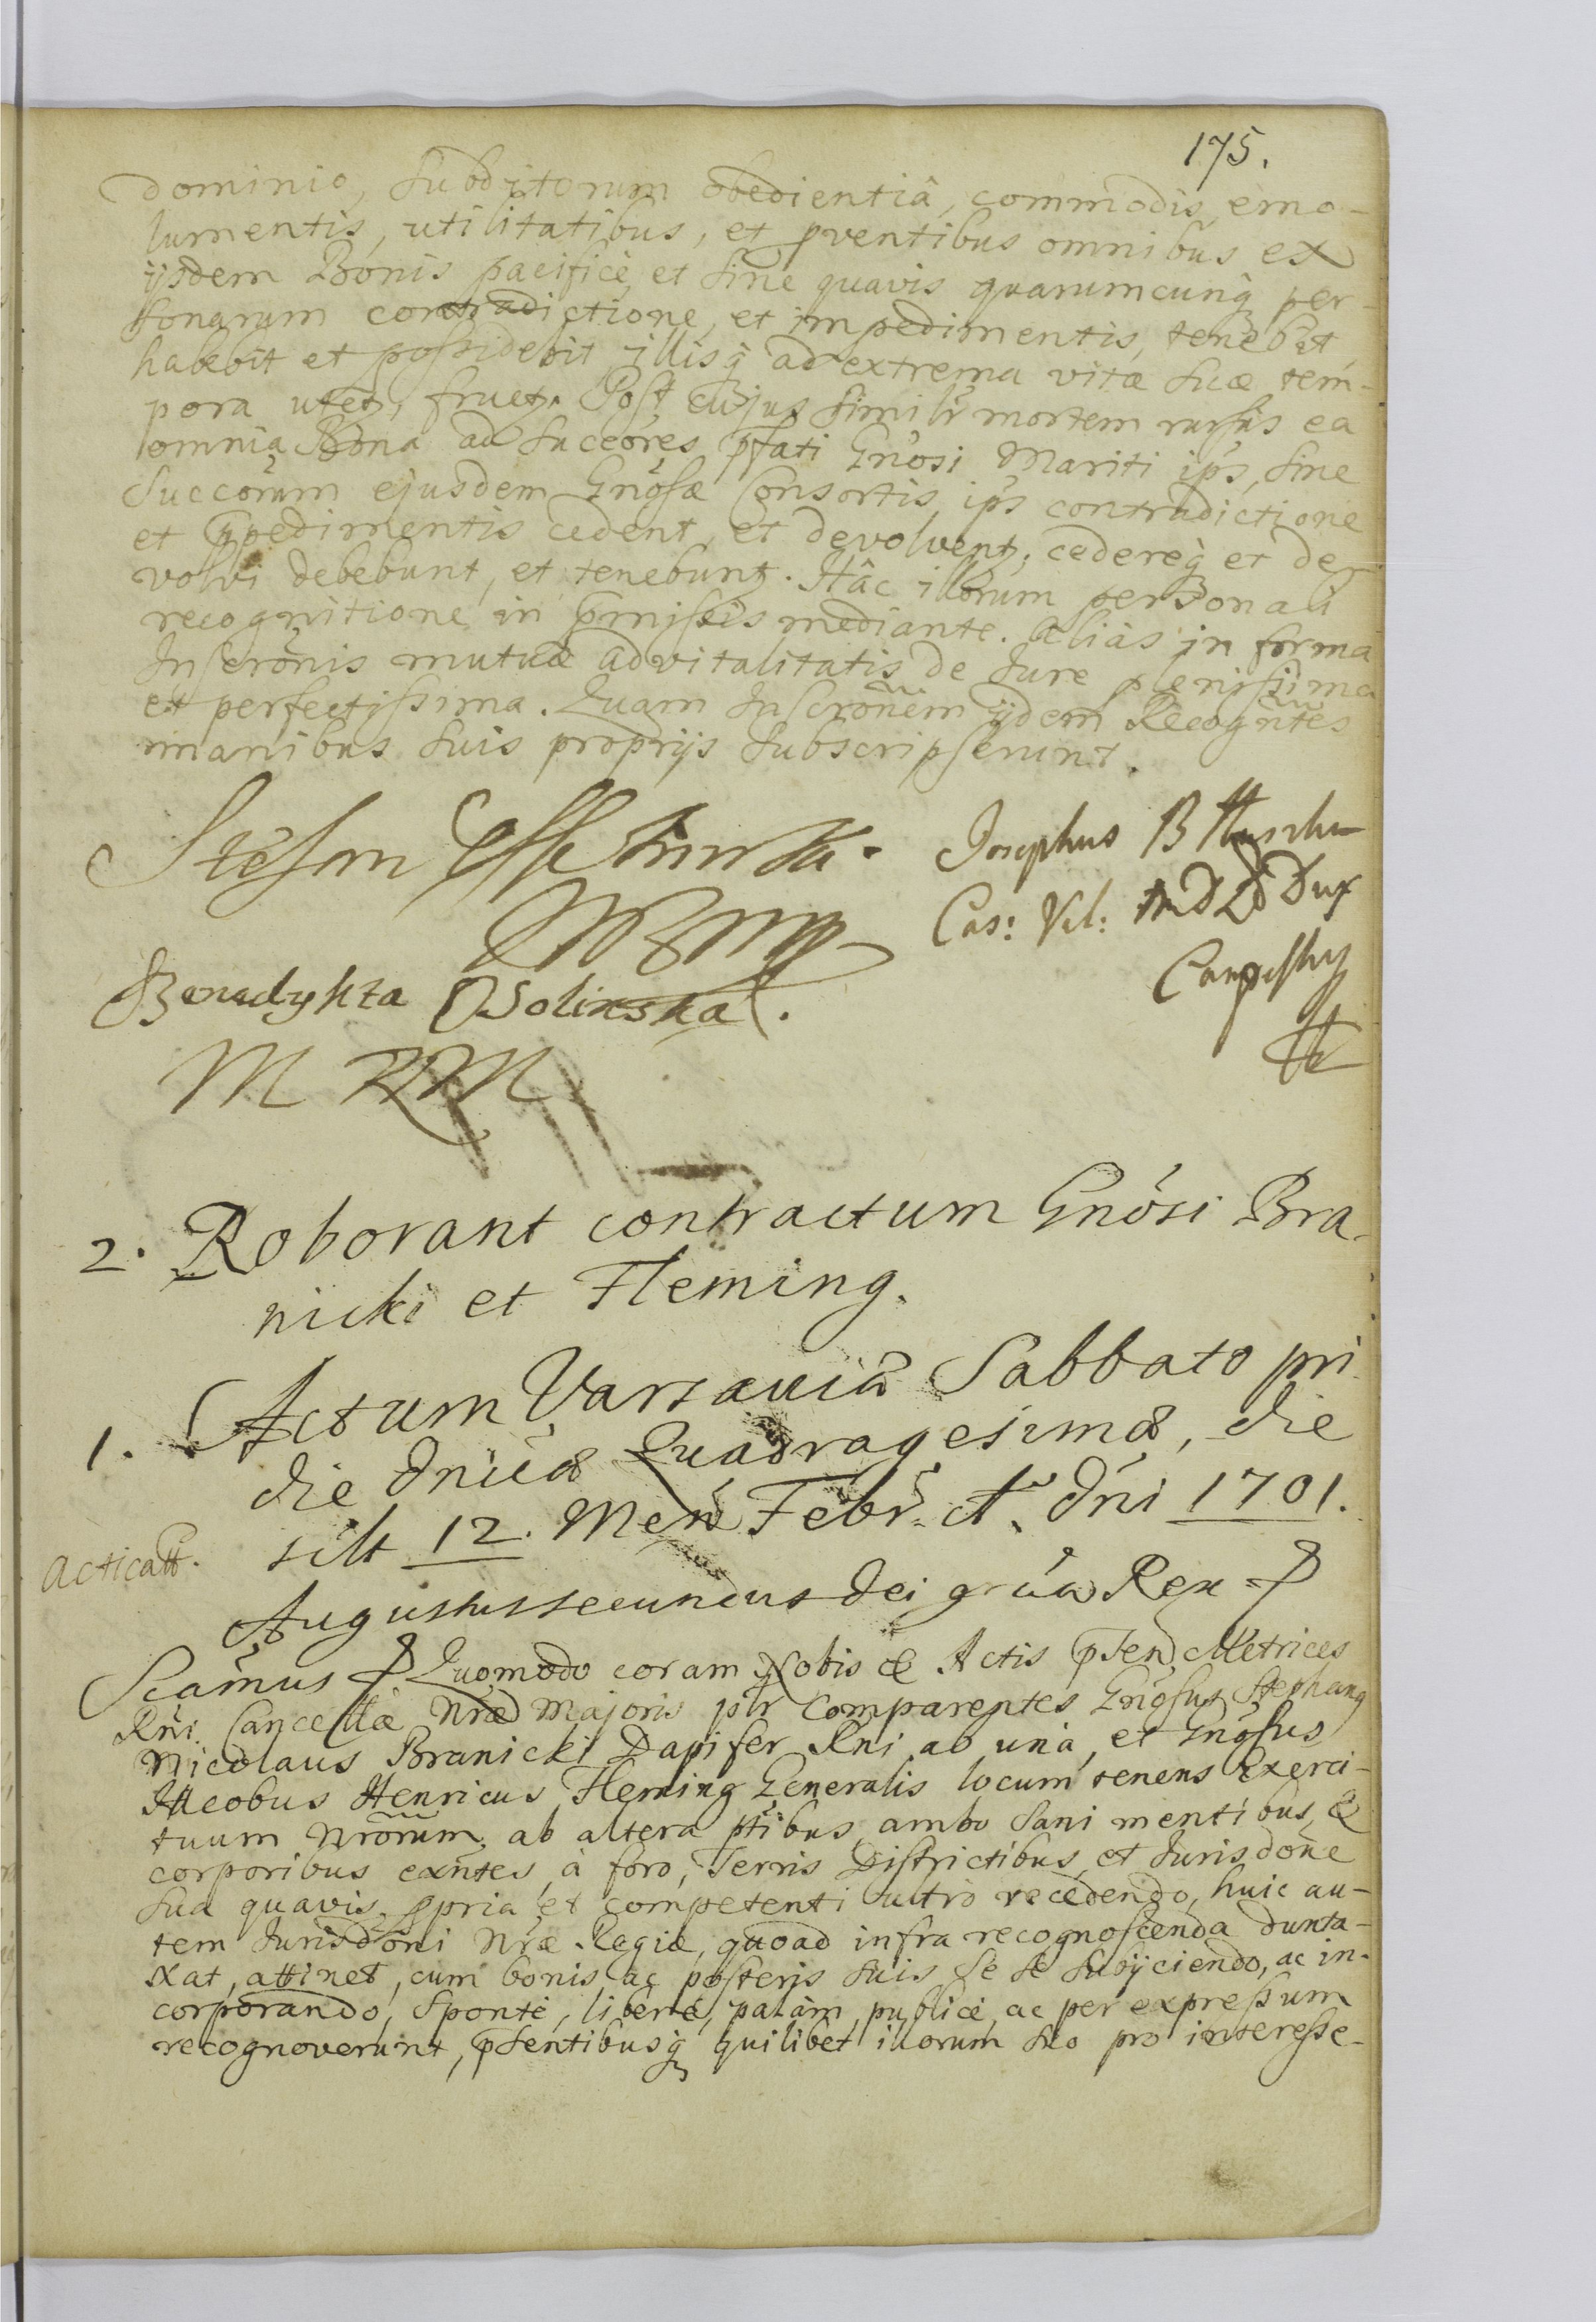 175.
dominio, subditorum obedientiâ, commodis, emo-
lumentis, utilitatibus, et pventibus omnibus ex
ijsdem Bonis pacificè, et sine quavis quarumcunq̀ per-
sonarum contradictione, et impedimentis, tenebit
habebit et possidebit illisq̀ ad extrema vitæ suæ tem-
pora utetr, fruetr. Post cujus similr mortem rursus ea
omnia Bona ad succeores pfati Gnosi Mariti ips, sine
Succorum ejusdem Gnosæ Consortis ips contradictione
et impedimentis cedent, et devolventr, cedereq̀ et de-
volvi debebunt, et tenebuntr. Hâc illorum personali
recognitione in pmissis mediante. Aliàs in forma
Inscronis mutuæ advitalitatis de Jure plenissima
et perfectissima. Quam Inscronem ijdem Recogntes
manibus suis proprijs subscripserunt.
Stefan
Josephus B
Cas: Vil: MDLD Dux
Campestry
Benedykta Wolinska.
M
2. Roborant contractum Gnosi Bra-
nicki et Fleming.
1. Actum Varsaviæ Sabbato pri
die Dnicæ Quadragesimæ, die
silt 12. Men Febr. A. Dni 1701.
Acticatt.
Augustus secundus Dei gráa Rex
Scamus Quomodo coram Nobis & Actis pnsen Metrices
Rni Cancellæ Nræ Majoris plr Comparentes Gnosus Stephanus
Nicolaus Branicki Dapifer Rni ab unà, et Gnosus
Jacobus Henricus Fleming Generalis locum tenens Exerci-
tuum Nrorum, ab altera ptibus, ambo sani mentibus, &
corporibus exntes, à foro, Terris Districtibus, et Jurisdone
sua quavis, ppria et competenti ultrò recedendo, huic au-
tem Jurisdoni Nræ Regiæ, quoad infra recognoscenda dunta-
xat, attinet, cum bonis, ac posteris suis se se subijciendo, ac in-
corporando, Spontè, liberè, palàm, publicè, ac per expressum
recognoverunt, psentibusq̀ quilibet illorum suo pro interesse-